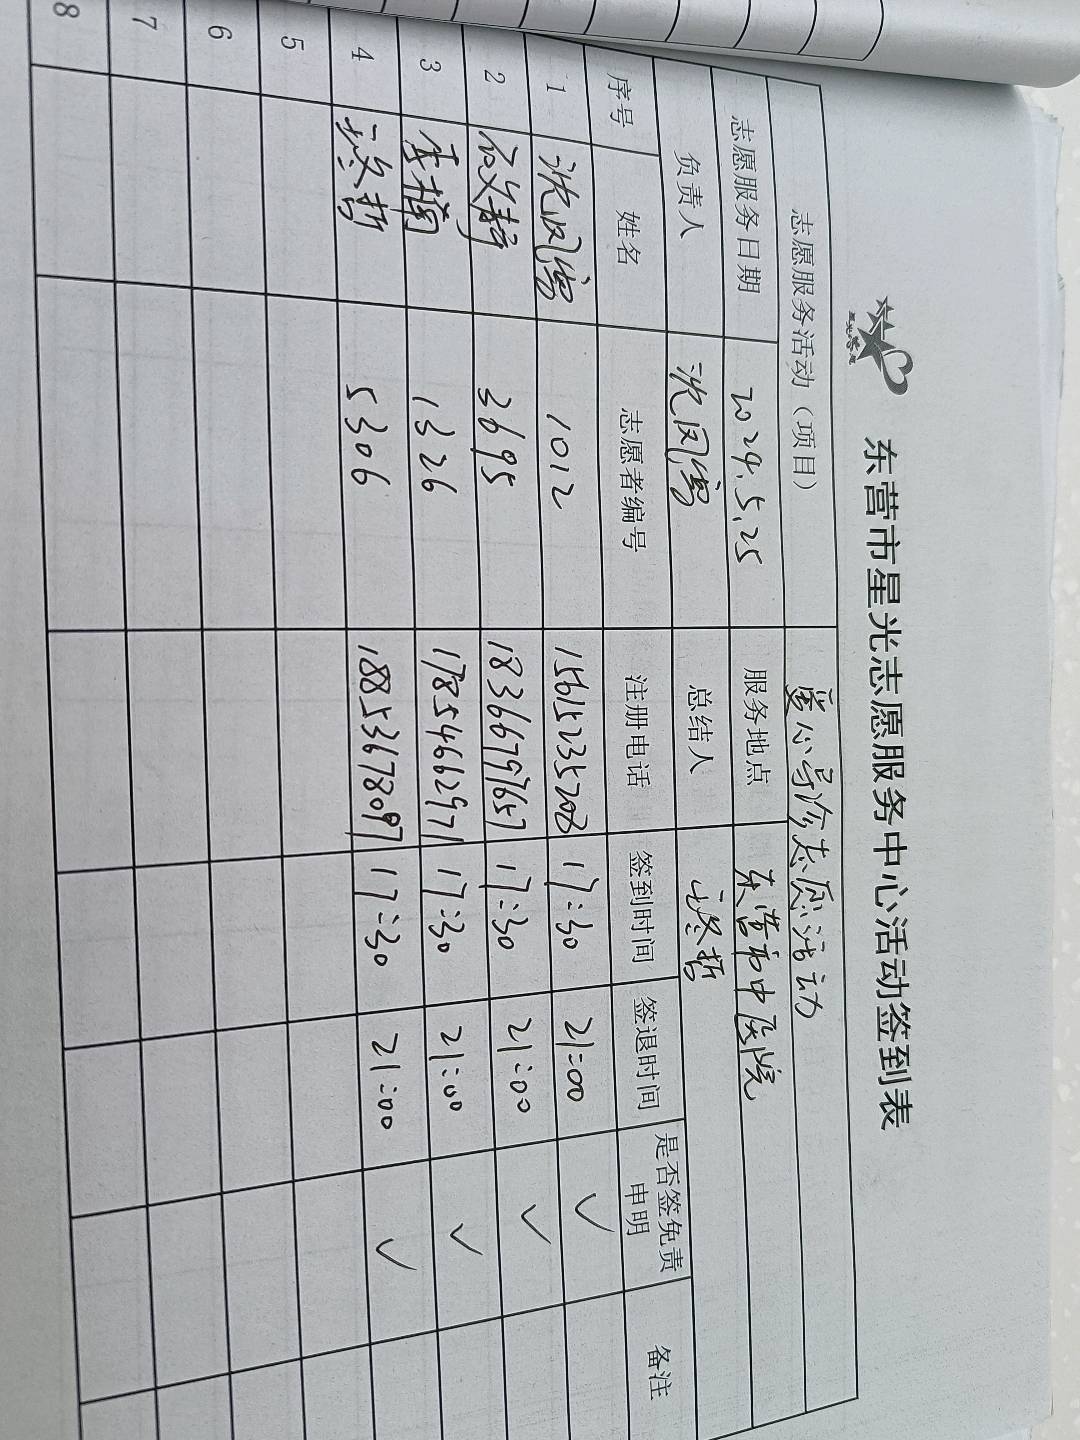 东营市星光志愿服务中心活动签到表
志愿服务活动（项目） 爱心导诊志愿活动
志愿服务日期 2024.5.25 服务地点 东营市中医院
负责人 沈凤 总结人
序号 姓名 志愿者编号 注册电话 签到时间 签退时间 是否签免责申明 备注
1 沈凤 1012 15615235208 17:30 21:00 ✓
2 3695 18366797657 17:30 21:00 ✓
3 李楠 1326 17854662971 17:30 21:00 ✓
4 5306 18853678097 17:30 21:00 ✓
5
6
7
8